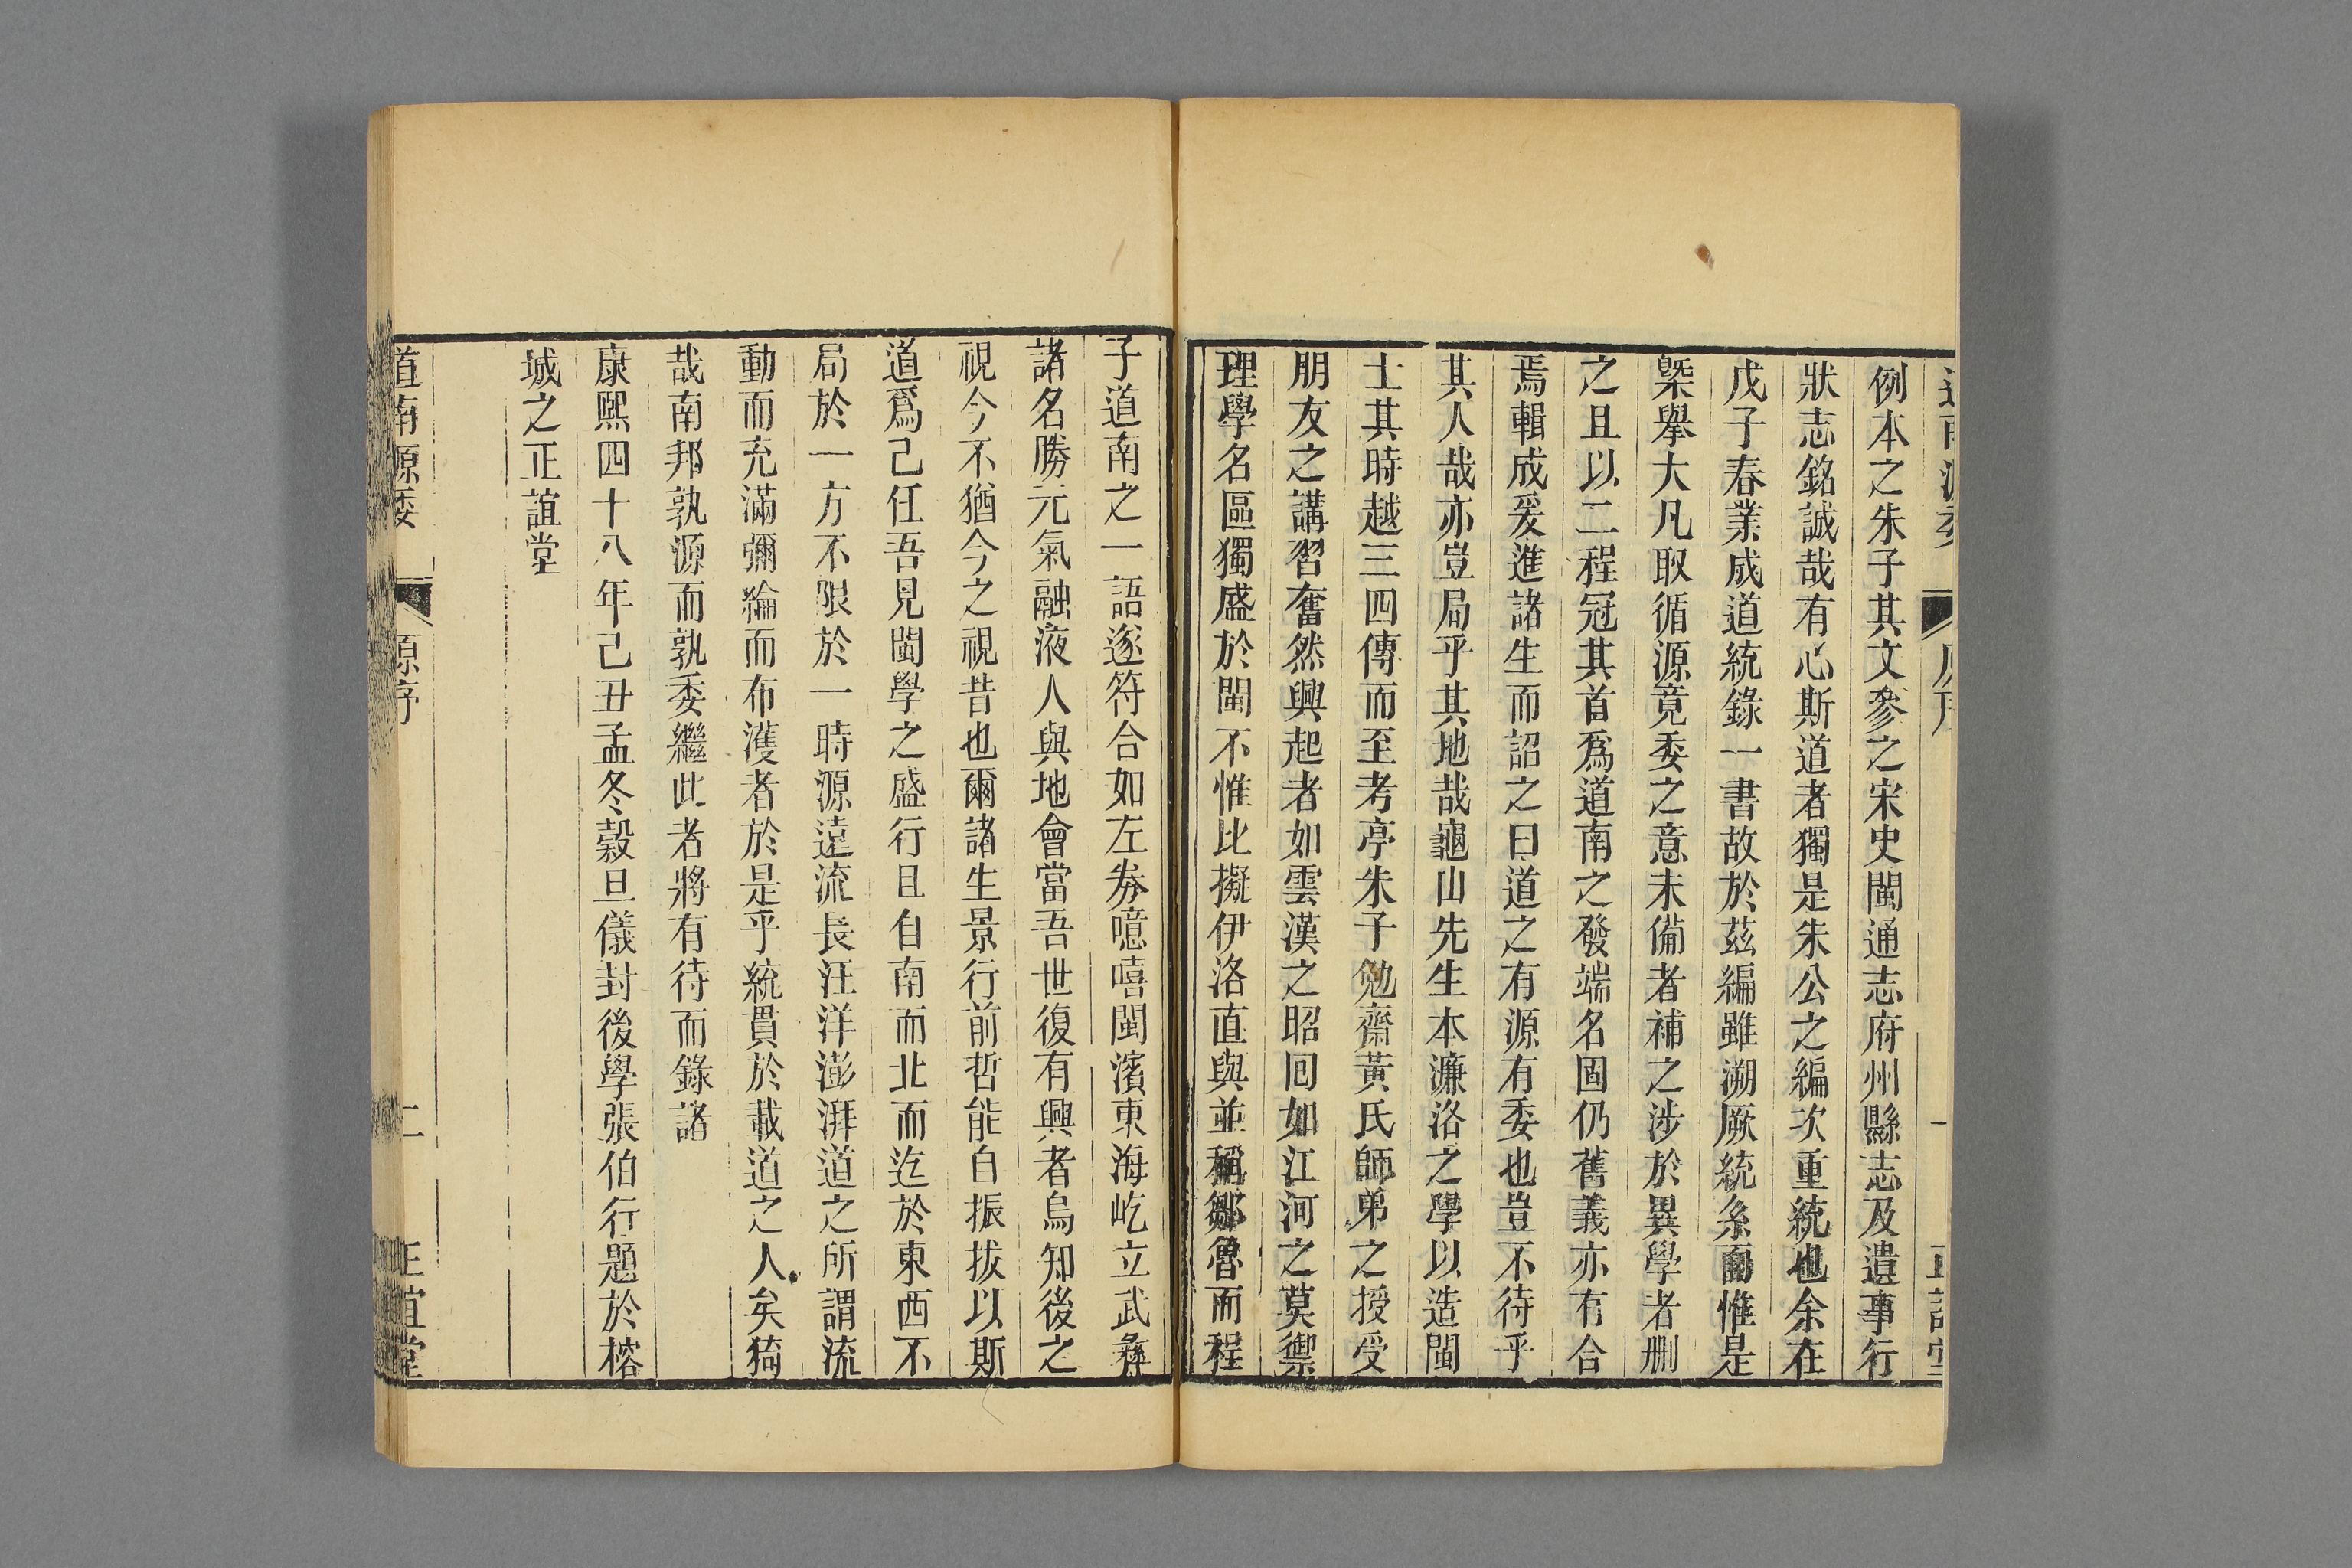 例本之朱子其文參之宋史閩通志府州縣志及遺事行
狀志銘誠哉有心斯道者獨是朱公之編次重統也余在
戊子春業成道統錄一書故於茲編雖溯厥統系而惟是
槩舉大凡取循源竟委之意未備者補之涉於異學者刪
之且以二程冠其首爲道南之發端名固仍舊義亦有合
焉輯成爰進諸生而詔之曰道之有源有委也豈不待乎
其人哉亦豈局乎其地哉龜山先生本濂洛之學以造閩
士其時越三四傳而至考亭朱子勉齋黃氏師弟之授受
朋友之講習奮然興起者如雲漢之昭回如江河之莫禦
理學名區獨盛於閩不惟比擬伊洛直與並稱鄒魯而程
子道南之一語遂符合如左券噫嘻閩濱東海屹立武彝
諸名勝元氣融液人與地會當吾世復有興者烏知後之
視今不猶今之視昔也爾諸生景行前哲能自振拔以斯
道爲己任吾見閩學之盛行且自南而北而迄於東西不
局於一方不限於一時源遠流長汪洋澎湃道之所謂流
動而充滿彌綸而布濩者於是乎統貫於載道之人矣猗
哉南邦孰源而孰委繼此者將有待而錄諸
康熙四十八年己丑孟冬穀旦儀封後學張伯行題於榕
城之正誼堂
道南源委 原序 二 正誼堂